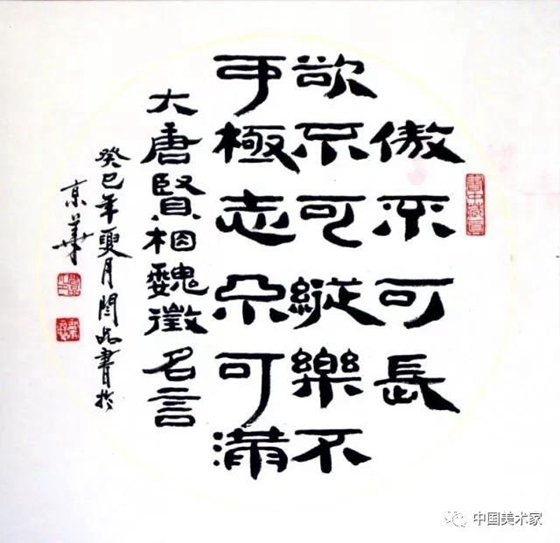 傲不可長
欲不可縱樂不
可極志不可滿
大唐賢相魏徵名言
癸巳年夏月閆書於
京華
中国美术家